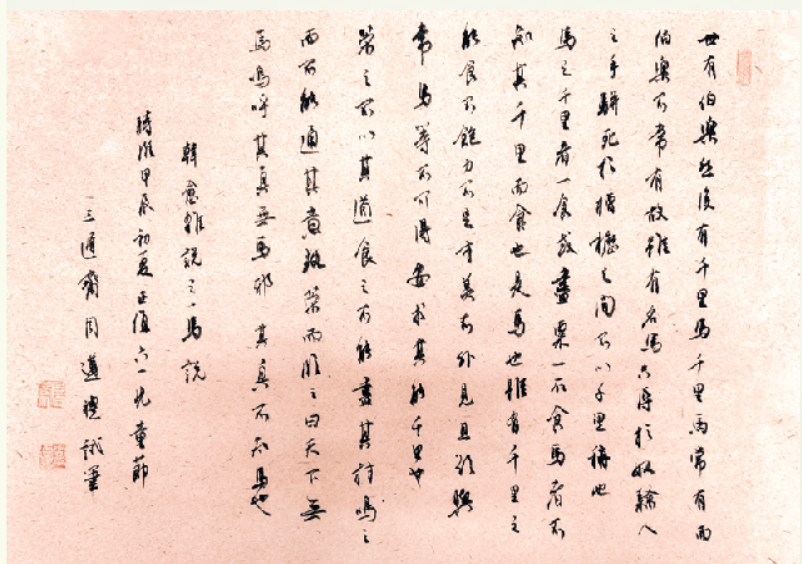 世有伯樂然後有千里馬千里馬常有而
伯樂不常有故雖有名馬只辱於奴隸人
之手駢死於槽櫪之間不以千里稱也
馬之千里者一食或盡粟一石食馬者不
知其千里而食也是馬也雖有千里之
能食不飽力不足才美不外見且欲與
常馬等不可得安求其能千里也
策之不以其道食之不能盡其材鳴之
而不能通其意執策而臨之曰天下無
馬嗚呼其真無馬邪其真不知馬也
韓愈雜說之一馬說
時維甲辰初夏正值六一兒童節
三通齋周遵德試筆